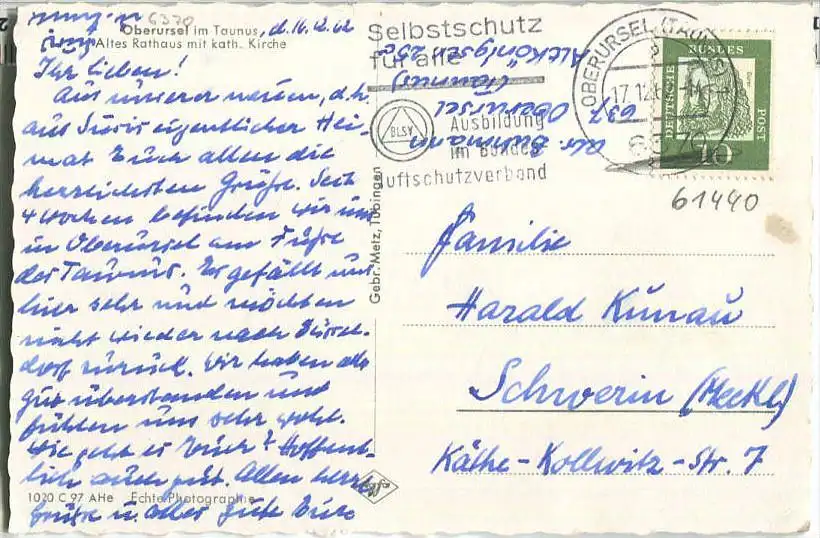 6370
Oberursel im Taunus, d. 16.12.62
Altes Rathaus mit kath. Kirche
Ihr Lieben!
Aus unserer neuen, d.h.
aus Susis eigentlicher Hei-
mat Euch allen die
herzlichsten Grüße. Seit
4 Wochen befinden wir uns
in Oberursel am Fuße
des Taunus. Es gefällt uns
hier sehr und möchten
nicht wieder nach Düssel-
dorf zurück. Wir haben alles
gut überstanden und
fühlen uns sehr wohl.
Wie geht es Euch? Hoffent-
lich auch gut. Allen herzl.
Grüße u. alles Gute Eure
1020 C 97 AHe Echte Photographie
Gebr. Metz, Tübingen
Selbstschutz
für alle
BLSV
Ausbildung
im Bundes
luftschutzverband
OBERURSEL (TAUNUS)
17.12.
DEUTSCHE BUNDESPOST
10
Altkönigstr. 25a
(Taunus)
637 Oberursel
61440
Familie
Harald Kunau
Schwerin (Meckl.)
Käthe-Kollwitz-Str. 7